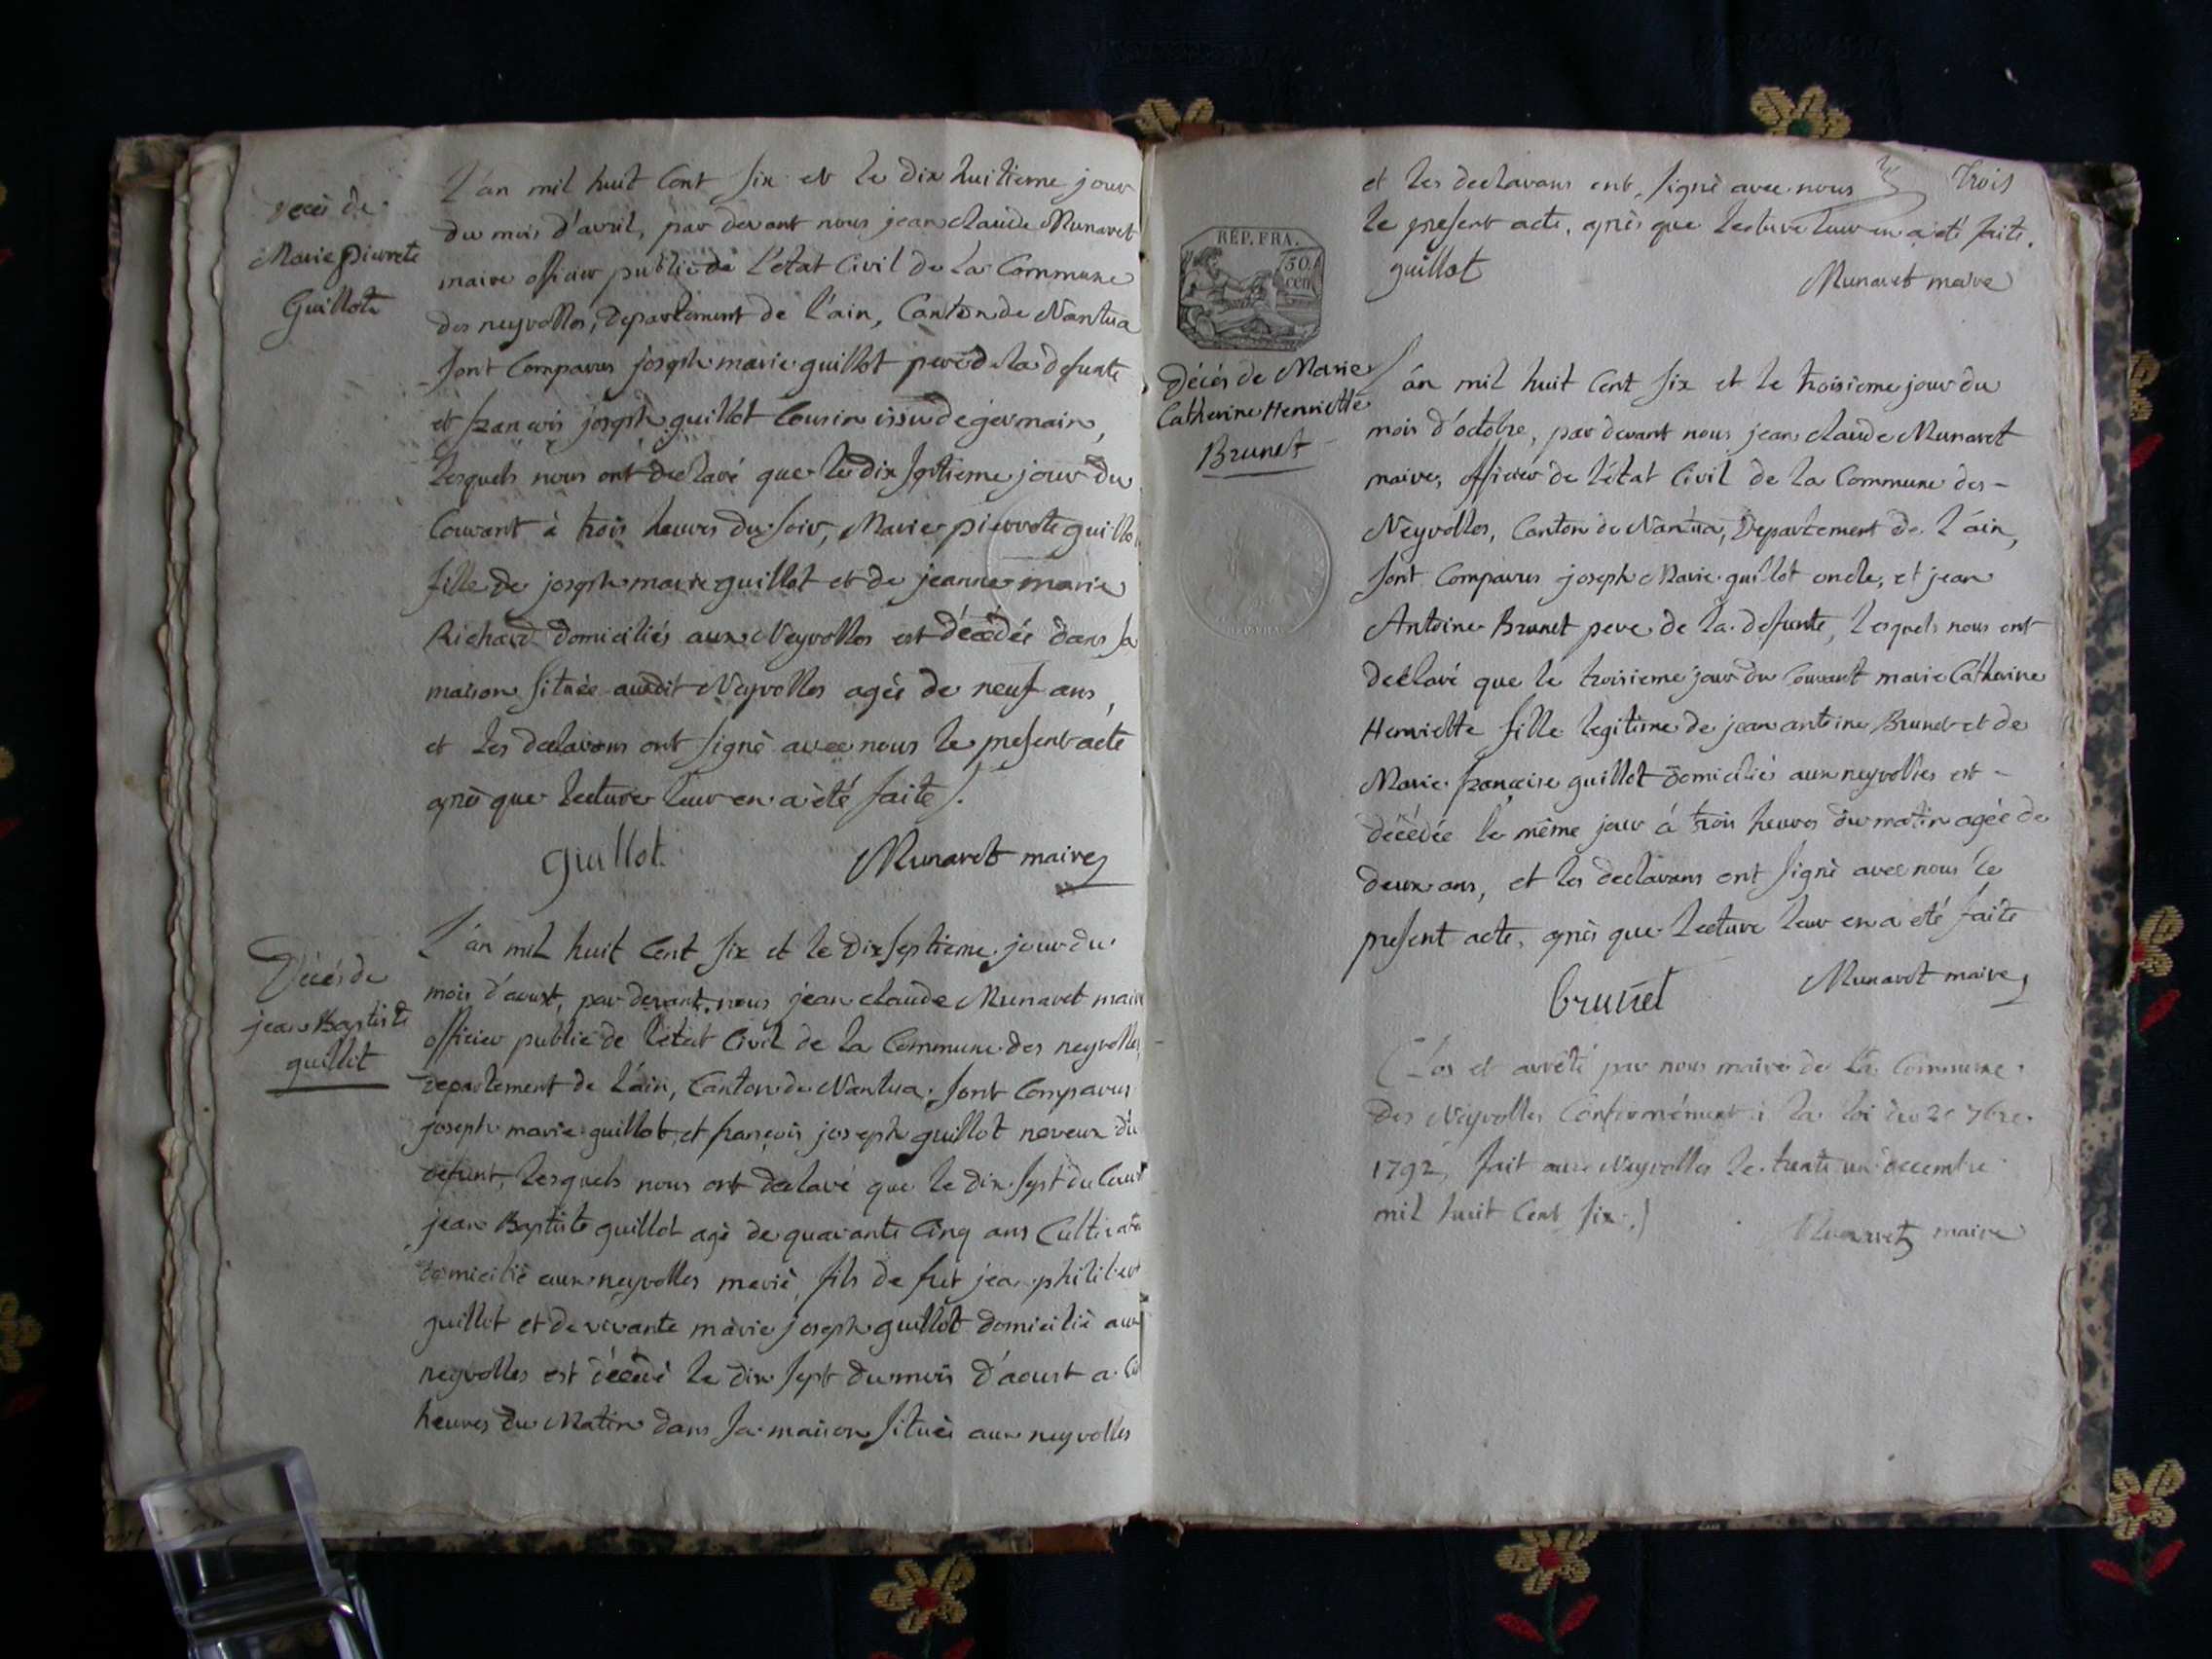 Décès de
Marie pierrete
Guillot
L'an mil huit Cent six et le dix huitieme jour
du mois d'avril, par devant nous jean claude Munaret
maire officier public de l'état Civil de la Commune
des neyrolles, departement de l'ain, Canton de Nantua
sont Comparus joseph marie guillot pere de la defunte
et francois joseph guillot Cousin issu de germain,
lesquels nous ont declaré que le dix septieme jour du
Courant à trois heures du soir, Marie pierrote guillo
fille de joseph marie guillot et de jeanne marie
Richard domiciliés aux Neyrolles est décédée dans sa
maison située audit Neyrolles agée de neuf ans,
et les declarans ont signé avec nous le present acte
après que lecture leur en a été faite.
guillot Munaret maire
Décés de
jean Baptiste
guillot
L'an mil huit Cent six et le dix septieme jour du
mois d'aoust, par devant nous jean claude Munaret maire
officier public de l'état Civil de la Commune des neyrolles,
departement de l'ain, Canton de Nantua. sont Comparus
joseph marie guillot et françois joseph guillot neveux du
defunt, lesquels nous ont declaré que le dix sept du Cour
jean Baptiste guillot agé de quarante Cinq ans Cultivate
domicilié aux neyrolles marié, fils de fut jean philibert
guillot et de vivante marie joseph guillot domicilié aux
neyrolles est décédé le dix sept du mois d'aoust a
heures du Matin dans sa maison située aux neyrolles
trois
et les declarans ont signé avec nous
le present acte, après que lecture leur en a été faite.
guillot Munaret maire
RÉP. FRA.
50
cen
Décés de Marie
Catherine Henriette
Brunet
L'an mil huit Cent six et le troisieme jour du
mois d'octobre, par devant nous jean claude Munaret
maire, officier de l'état Civil de la Commune des -
Neyrolles, Canton de Nantua, Departement de l'ain,
sont Comparus joseph Marie guillot oncle, et jean
Antoine Brunet pere de la defunte, lesquels nous ont
declaré que le troisieme jour du Courant marie Catherine
Henriette fille legitime de jean antoine Brunet et de
Marie françoise guillot domicilié aux neyrolles est -
décédée le même jour à trois heures du matin agée de
deux ans, et les declarans ont signé avec nous le
present acte, après que lecture leur en a été faite
brunet Munaret maire
Clos et arrêté par nous maire de la Commune
des Neyrolles Conformément à la loi du 20 7bre.
1792, fait aux Neyrolles le trente un decembre
mil huit Cent six.
Munaret maire